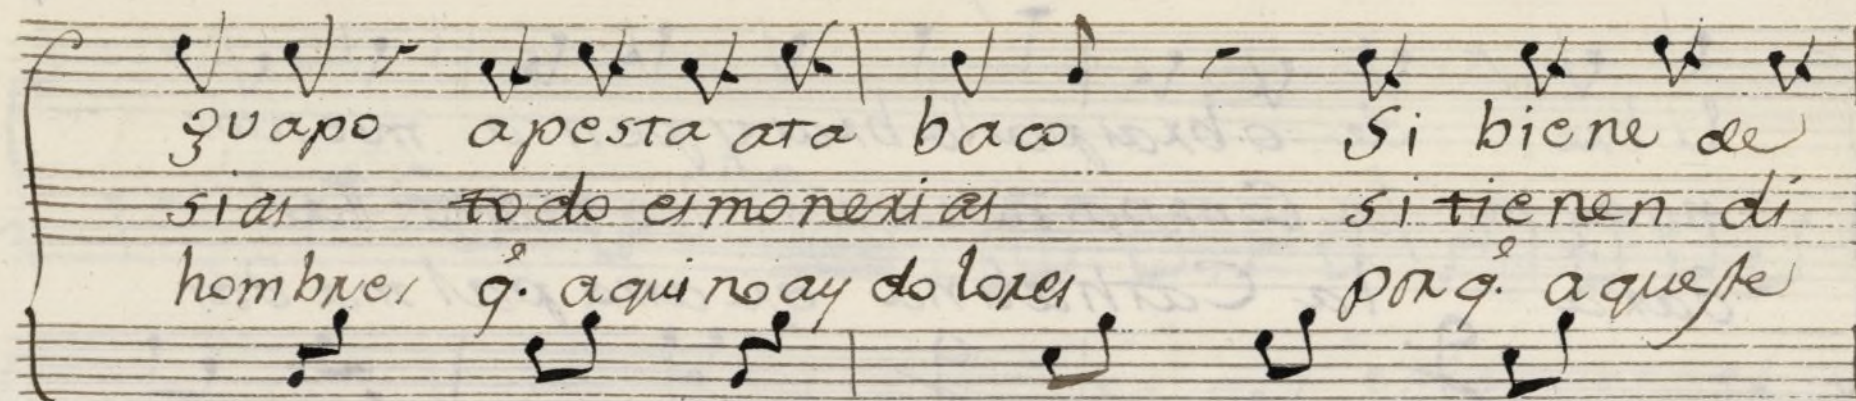 guapo apesta ata baco Si biene de
sias todo es monerias si tienen di
hombres q.e aqui no ay dolores porq.e aqueste